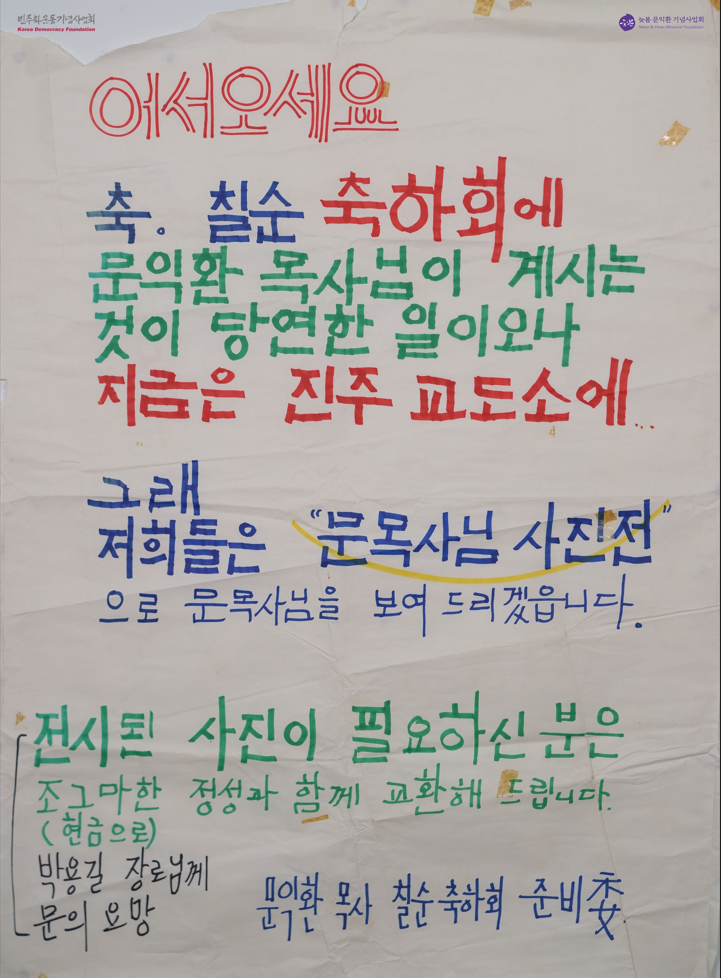 민주화운동기념사업회
Korea Democracy Foundation
늦봄 문익환 기념사업회
어서오세요
축. 칠순 축하회에
문익환 목사님이 계시는
것이 당연한 일이오나
지금은 진주 교도소에...
그래
저희들은 "문목사님 사진전"
으로 문목사님을 보여 드리겠읍니다.
전시된 사진이 필요하신 분은
조그마한 정성과 함께 교환해 드립니다.
(현금으로)
박용길 장로님께
문의 요망
문익환 목사 칠순 축하회 준비委